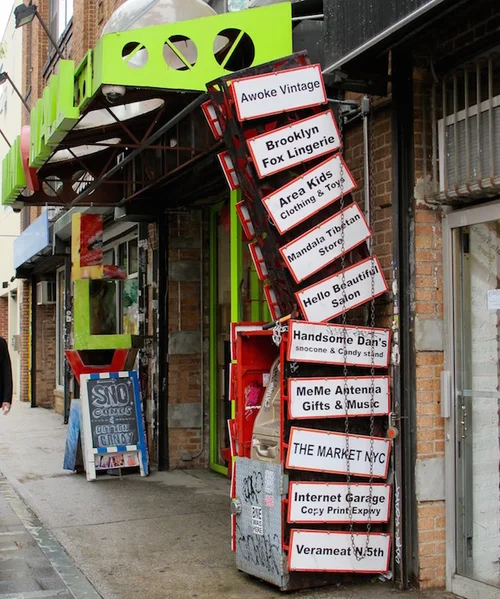 Awoke Vintage
Brooklyn
Fox Lingerie
Area Kids
Clothing & Toys
Mandala Tibetan
Store
Hello Beautiful
Salon
Handsome Dan's
snocone & Candy stand
MeMe Antenna
Gifts & Music
THE MARKET NYC
Internet Garage
Copy Print Expwy
Verameat N.5th
SNO
CONES
&
COTTON
CANDY